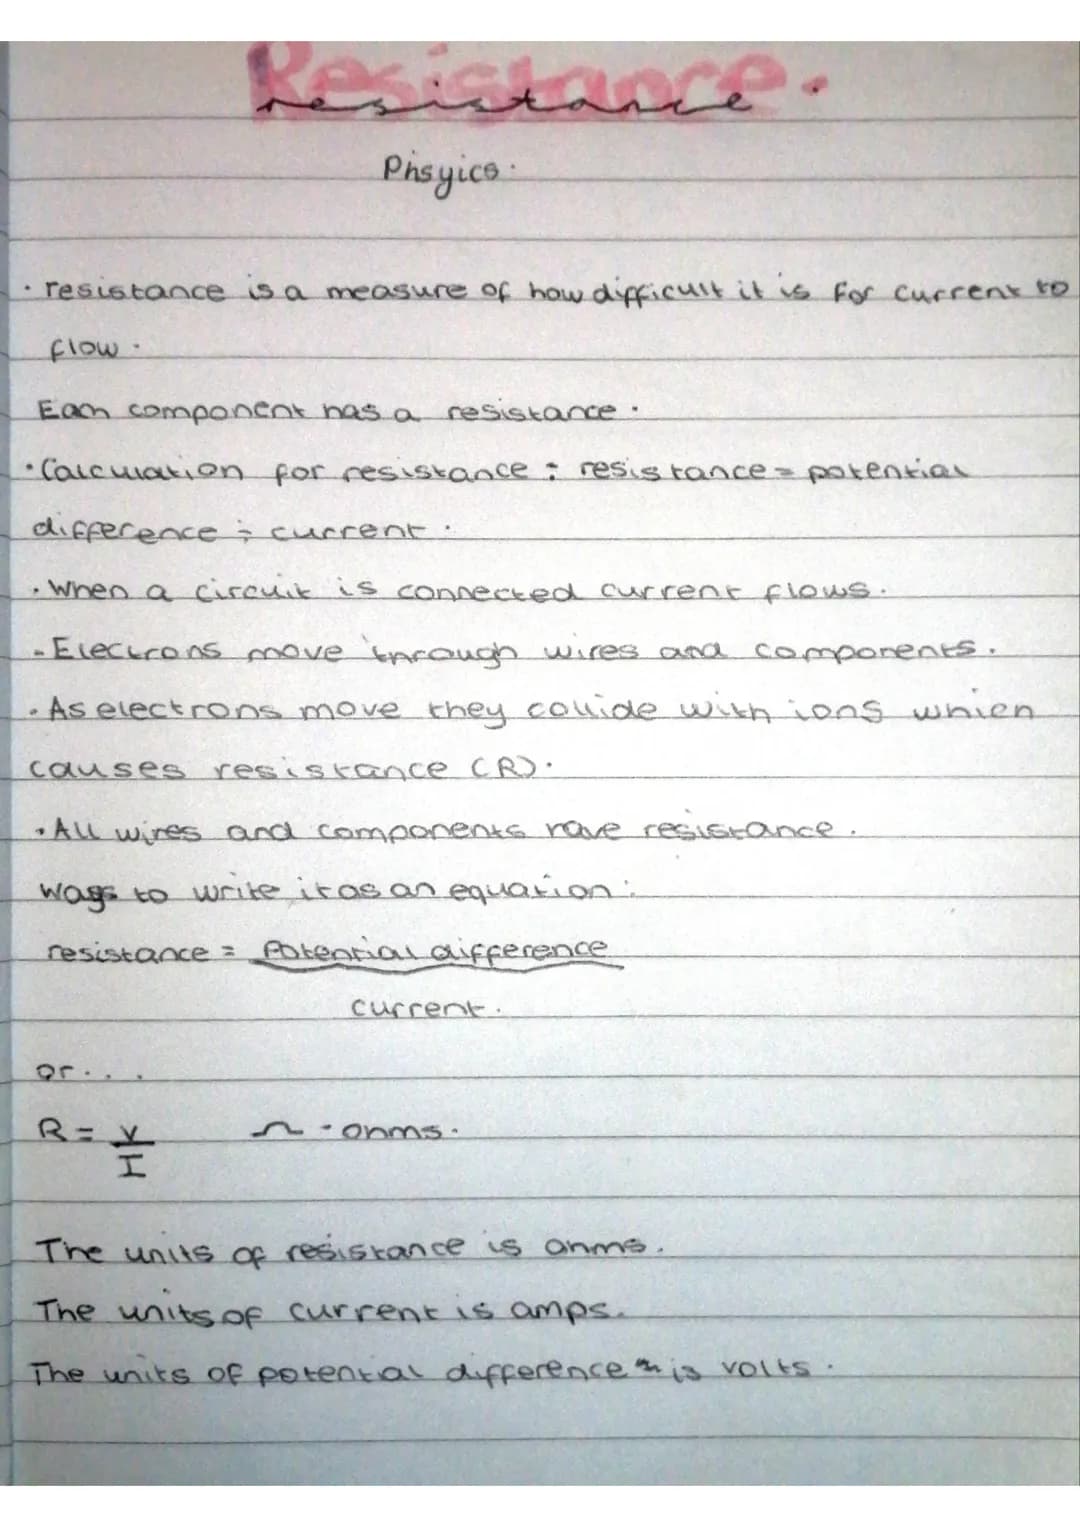 Resistance.
resistance
Phsyics.
• resistance is a measure of how difficult it is for current to
flow.
Each component has a resistance.
• Calculation for resistance : resistance = potential
difference ÷ current.
• When a circuit is connected current flows.
- Electrons move through wires and components.
• As electrons move they collide with ions which
causes resistance (R).
• All wires and components have resistance.
Ways to write it as an equation:
resistance = Potential difference
current.
or...
R = V
I
Ω - ohms.
The units of resistance is ohms.
The units of current is amps.
The units of potential difference is volts.